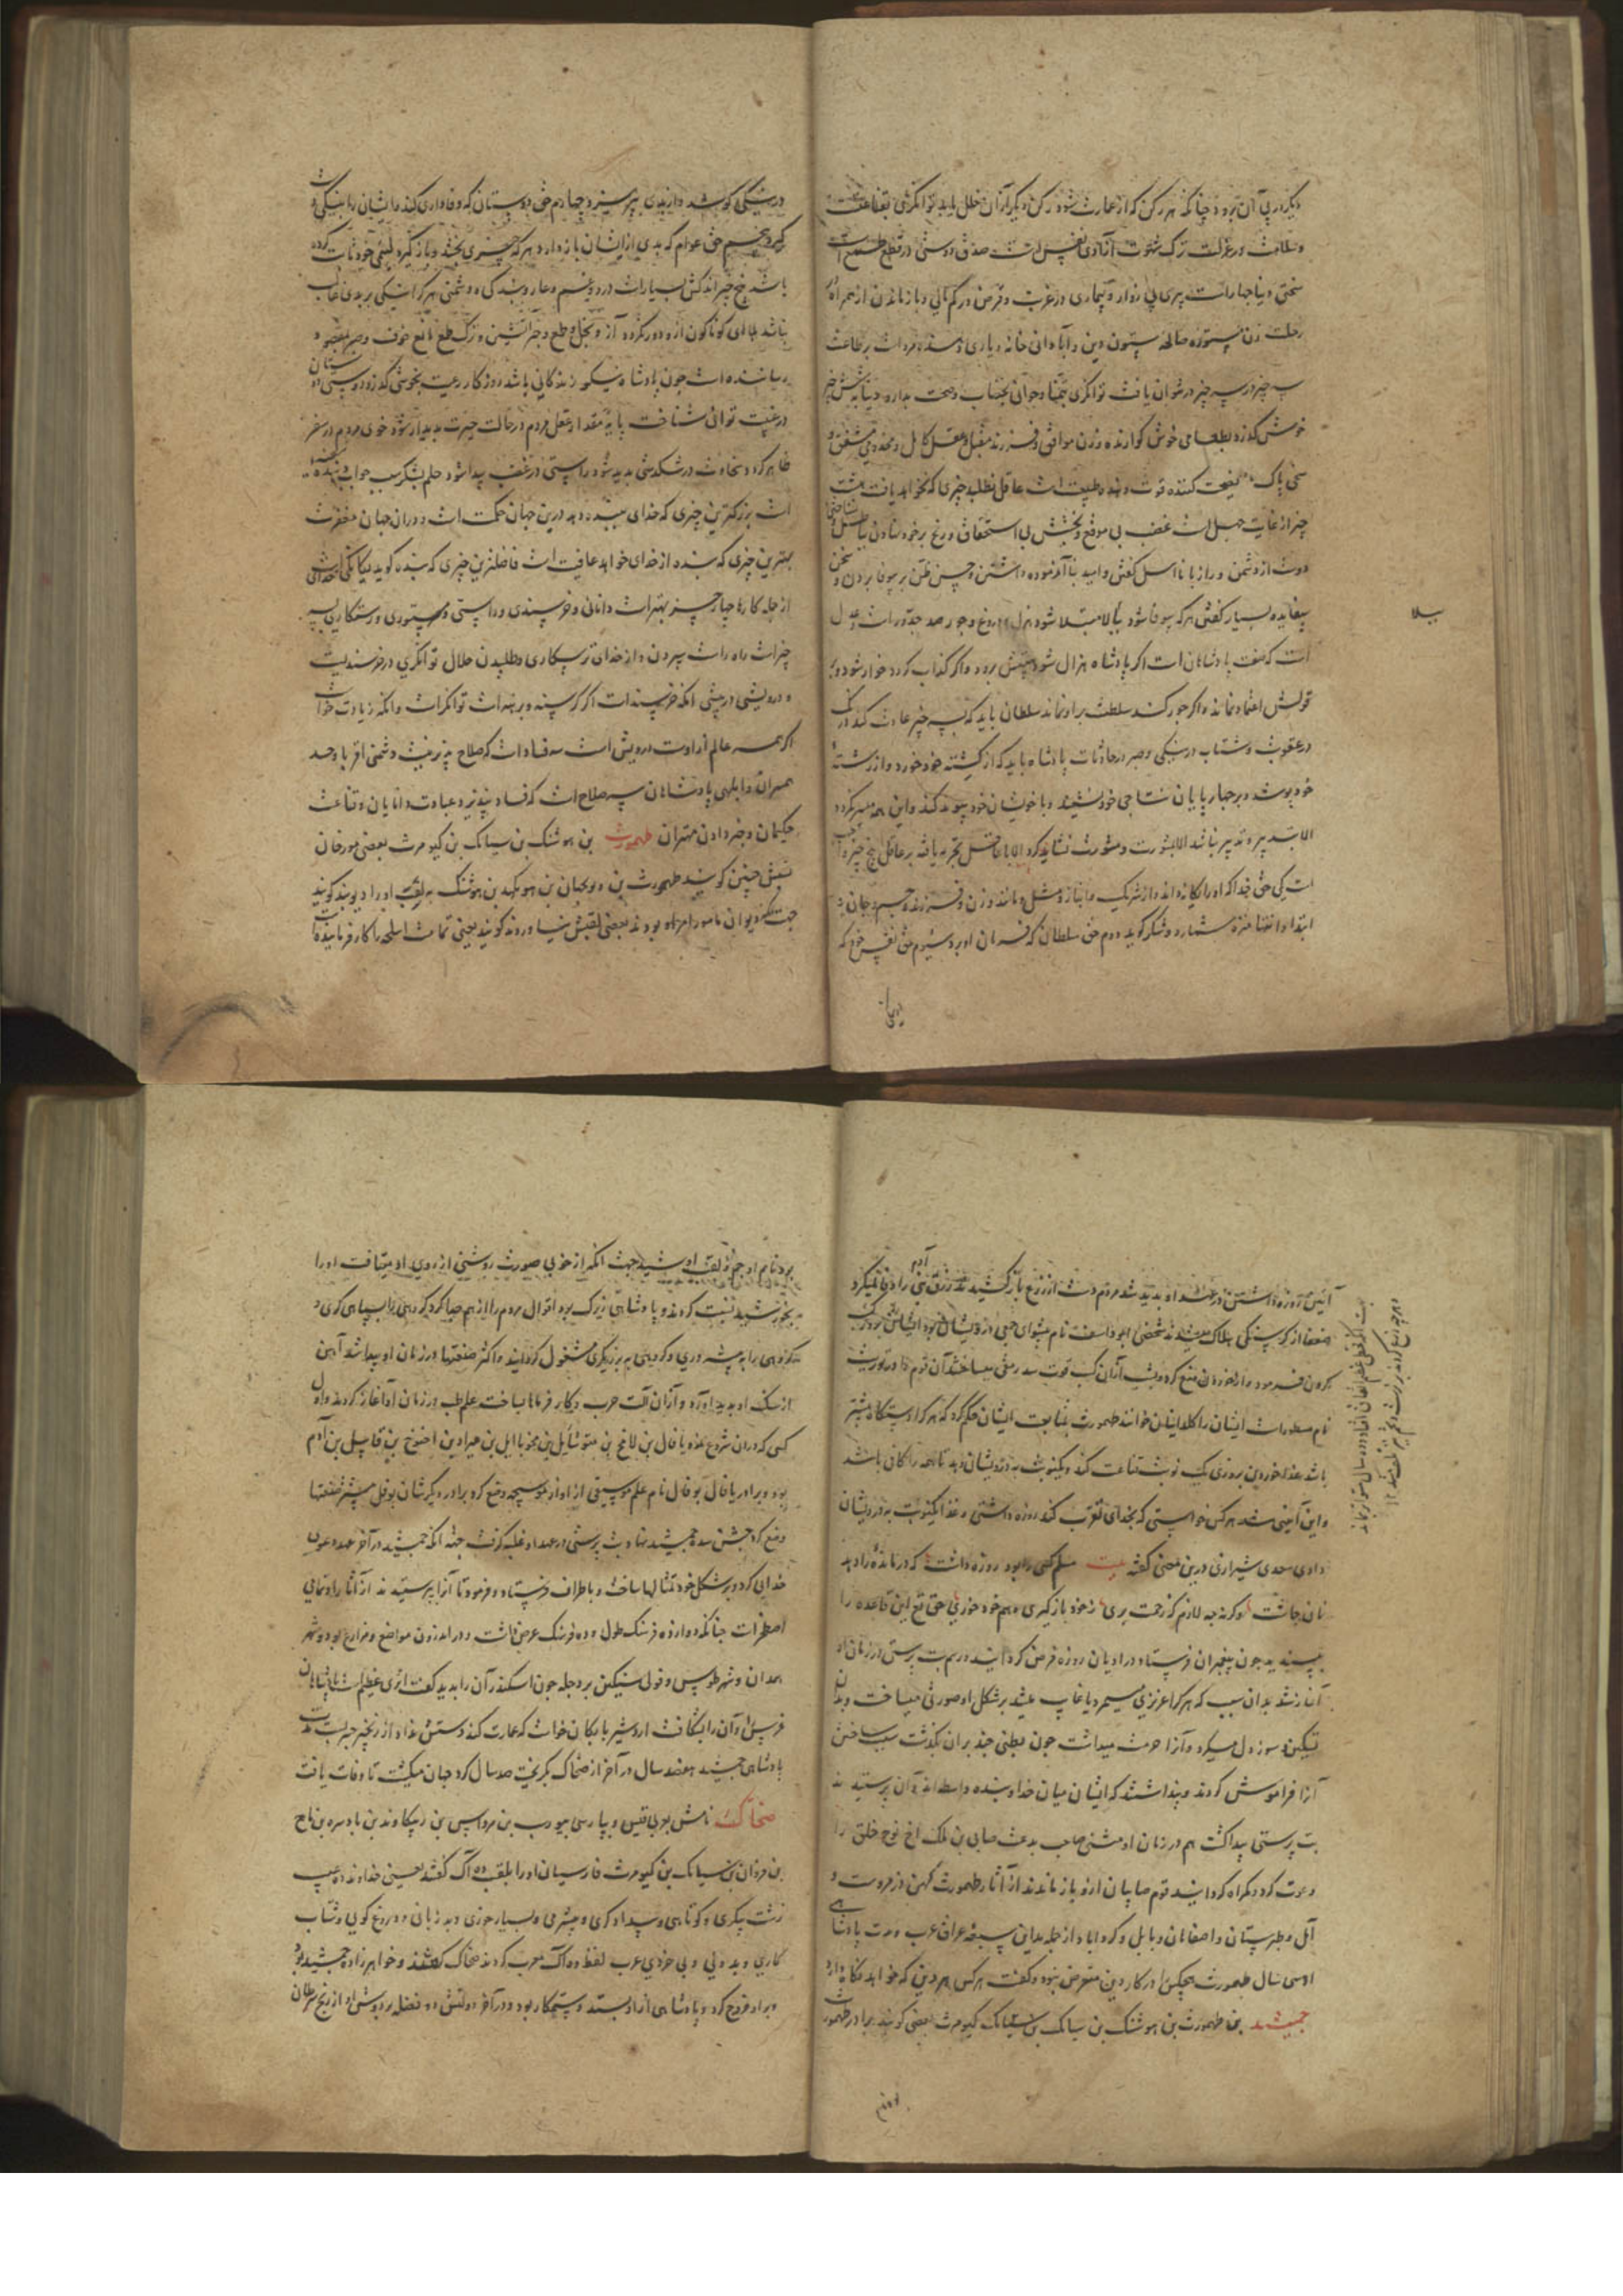 دیگر از پی آن برود چنانکه هر رکن که از عمارت شود رکن دیگر از آن خلل یابد توانگری بقناعت
و سلامت در عزلت ترک شهوت آزادی نفس است صدق دوستی در قطع طمع است
سختی دنیا چهار است پیری بی زوار و بیماری در غربت و قرض در کم مالی و بازماندن از همراه
رحلت زن مستوره صالحه ستون دین و آبادانی خانه و یاری دهنده مرد است بر طاعت
سه چیز در سه چیز در نتوان یافت توانگری بتمنا و جوانی بخضاب و صحت بدارو دنیا به شش چیز
خوش گذرد بطعامی خوش گوارنده و زن موافق و فرزند مقبل و عقل کامل و مخدومی مشفق و
سخن پاک نصیحت کننده قوت دهنده طبیعت است عاقل نطلبد چیزی که نخواهد یافت هشت
چیز از غایت جهل است غضب بی موقع و بخشش بی استحقاق و رنج بر خود نهادن بباطل و نشناختن
دوست از دشمن و راز با نااهل گفتن و امید با آزموده داشتن و حسن ظن بر بیوفا بردن و سخن
بیفایده بسیار گفتن هر که بیوفا شود ببلا مبتلا شود هزل و دروغ و جور ضد جد و راستی و عدل
یبلا
است که صفت پادشاهان است اگر پادشاه هزال شود هیبتش برود و اگر کذاب گردد خوار شود و بر
قولش اعتماد نماند و اگر جور کند سلطنت بر او نماند سلطان باید که بسه چیز عادت کند درنگ
در عقوبت و شتاب در نیکی و صبر در حادثات پادشاه باید که از کشته خود خورد و از رشته
خود پوشد و بر چهارپایان نتاجی خود نشیند و با خویشان خود پیوند کند و این همه میسر نگردد
الا بتدبیر و تدبیر نباشد الا بمشورت و مشورت نشاید کرد الا با عاقل تجربه یافته بر عاقل پنج چیز واجب
است یکی حق خدا که او را یگانه داند و از شریک و انباز و مثل و مانند و زن و فرزند و جسم و جان و
ابتدا و انتها منزه شمارد و شکر گوید دوم حق سلطان که فرمان او برد سیوم حق نفس خود که
در نیکی کوشد و از بدی بپرهیزد چهارم حق دوستان که وفاداری کند و ایشان را به نیکی
گیرد پنجم حق عوام که بدی از ایشان باز دارد و هر که چیزی بخشد و باز گیرد لئیمی خود ثابت کرده
باشد پنج چیز اندکش بسیار است درد و غم و عار و بندگی و دشمنی هر کرا نیکی بر بدی غالب
نباشد بلاهای گوناگون ازو دور نگردد آز و بخل و طمع و حیرانیش و ترک طمع مانع خوف و صبر بمقصود
رساننده است چون پادشاه نیکو زندگانی باشد روزگار رعیت بخوشی گذرد دوستی دوستان
در غیبت توانی شناخت پایه مقدار عقل مردم در حالت حیرت پدیدار شود خوی مردم در سفر
ظاهر گردد سخاوت در تنگدستی پدید شود راستی در غضب پیدا شود حلم
است بزرگترین چیزی که خدای ببنده دهد درین جهان حکمت است و در آن جهان مغفرت
بهترین چیزی که بنده از خدای خواهد عافیت است فاضلترین چیزی که بنده گوید بیگانگی خداست
از جمله کارها چهار چیز بهتر است دانائی و خرسندی و راستی و مستوری و رستگاری بسه
چیز است راه راست سپردن و از خدای ترسکاری و طلبیدن حلال توانگری در خرسندیست
و درویشی در بیشی آنکه خرسند است اگر گرسنه و برهنه است توانگر است و آنکه زیادت خواست
اگر همه عالم او راست درویش است سه فساد است که صلاح نپذیرد یکی دشمنی اقربا و حسد
همسران و ابلهی پادشاهان سه صلاح است که فساد نپذیرد عبادت دانایان و قناعت
حکیمان و خبر دادن مهتران طهمورث بن هوشنگ بن سیامک بن کیومرث بعضی مورخان
نسبش چنین گویند طهمورث بن ویونجهان بن هونکهد بن هوشنگ به لقب او را دیوبند گویند
جهت آنکه دیوان مامور امر او بودند بعضی لقبش زیناوند گویند یعنی تمامت سلاح را کار فرماینده
آئین روزه داشتن در عهد او پدید شد مردم دست از زرع بازکشیدند رزق بنی آدم را وفا نمیکرد
ضعفا از گرسنگی هلاک میشدند شخصی ابوداسف نام پیشوای جمعی درویشان بود ایشان را
کردن فرمود و از خوردن منع کرد و شب از آن کسب قوت سد رمقی میساختند آن قوم را در توریت
نام مسطور است ایشان را کلدانیان خوانند طهمورث بمتابعت ایشان حکم کرد که هر کرا دستگاه بیشتر
باشد غذا خوردن بروزی یک نوبت قناعت کند و یکنوبت بدرویشان دهد تا همه را کاف باشد
و این آئینی شد هر کس خواستی که بخدای تقرب کند روزه داشتی و غذا یکنوبت بدرویشان
دادی سعدی شیرازی درین معنی گفته بیت مسلم کسی را بود روزه داشت که درمانده را دهد
نان چاشت وگرنه چه لازم که زحمت بری ز خود بازگیری و هم خود خوری حق تع این قاعده را
پسندید چون پیغمبران فرستاد در ادیان روزه فرض گردانید و رسم بت پرستی در زمان او
آغاز شد بدان سبب که هر کرا عزیزی میمرد یا غایب میشد بر شکل او صورتی میساخت و بدان
تسکین سوز دل میکرد و آنرا حرمت میداشت چون بطنی چند بر آن بگذشت سبب ساختن
آنرا فراموش کردند و پنداشتند که ایشان میان خدا و بنده واسطه اند و آن پرستیدند
بت پرستی پیدا گشت هم در زمان او متنبی صاحب بدعت صابی بن لمک اخ نوح خلق را
دعوت کرد و گمراه گردانید قوم صابیان ازو باز ماندند از آثار طهمورث کهن دز مرو است و
آمل و طبرستان و اصفاهان و بابل و کردآباد از جمله مداین سبعه عراق عرب مدت پادشاهی
او سی سال طهمورث هیچکس را در کار دین متعرض نبود و گفت هر کس هر دین که خواهد نگاه دارد
جمشید بن طهمورث بن هوشنگ بن سیامک بن کیومرث بعضی گویند برادر طهمورث
بود نام او جم و لقب او شید جهت آنکه از خوبی صورت روشنی از روی او میتافت او را
بخورشید نسبت کردند و پادشاهی بزرگ بود اقوال مردم را از هم جدا کرد گروهی را بسپاهی گری
گروهی را به پیشه وری و گروهی به برزیگری مشغول گردانید و اکثر صنعتها در زمان او پیدا شد آهن
از سنگ او پدید آورد و از آن آلت حرب و کار فرمانها ساخت علم طب در زمان او آغاز کردند و اول
کسی که در آن شروع نمود یافال بن لامخ بن متوشایل بن محویاایل بن عیراد بن اخنوخ بن قابیل بن آدم
بود و برادر یافال بوفال نام علم موسیقی از آواز موسیجه وضع کرد برادر دیگرشان بوقبل بیشتر صنعتها
وضع کرد جشن سده جمشید نهاد و بت پرستی در عهد او غلبه گرفت جهة آنکه جمشید در آخر عهد دعوی
خدایی کرد و بر شکل خود تمثالها ساخت و باطراف فرستاد و فرمود تا آنرا پرستیدند از آثار او تمامی
اصطخر است چنانکه دوازده فرسنگ طول و ده فرسنگ عرض داشت و در اندرون مواضع و مزارع بود و شهر
همدان و شهر طوس و قولی سنگین بر دجله چون اسکندر آن را بدید گفت اثری عظیم است پادشاهان
فرس را و آن را بشکافت اردشیر بابکان خواست که عمارت کند دستش نداد از زنجیر جسر بست
پادشاهی جمشید هفتصد سال در آخر از ضحاک بگریخت صد سال گرد جهان میگشت تا وفات یافت
ضحاک نامش بعربی قیس و بپارسی بیورسب بن مرداسپس بن زینکاوند بن بادسره بن تاج
بن فروان بن سیامک بن کیومرث فارسیان او را بلقب ده آک گفتند یعنی خداوند ده عیب
زشت پیکری و کوتاهی و بیدادگری و بیشرمی و بسیار خوری و بد زبانی و دروغ گویی و شتاب
کاری و بددلی و بی خردی عرب لفظ ده آک معرب کردند ضحاک گفتند و خواهرزاده جمشید بود
بر او خروج کرد و پادشاهی از او بستد و ستمکار بود و در آخر دولتش دو فضله بر دوش او از رنج سرطان